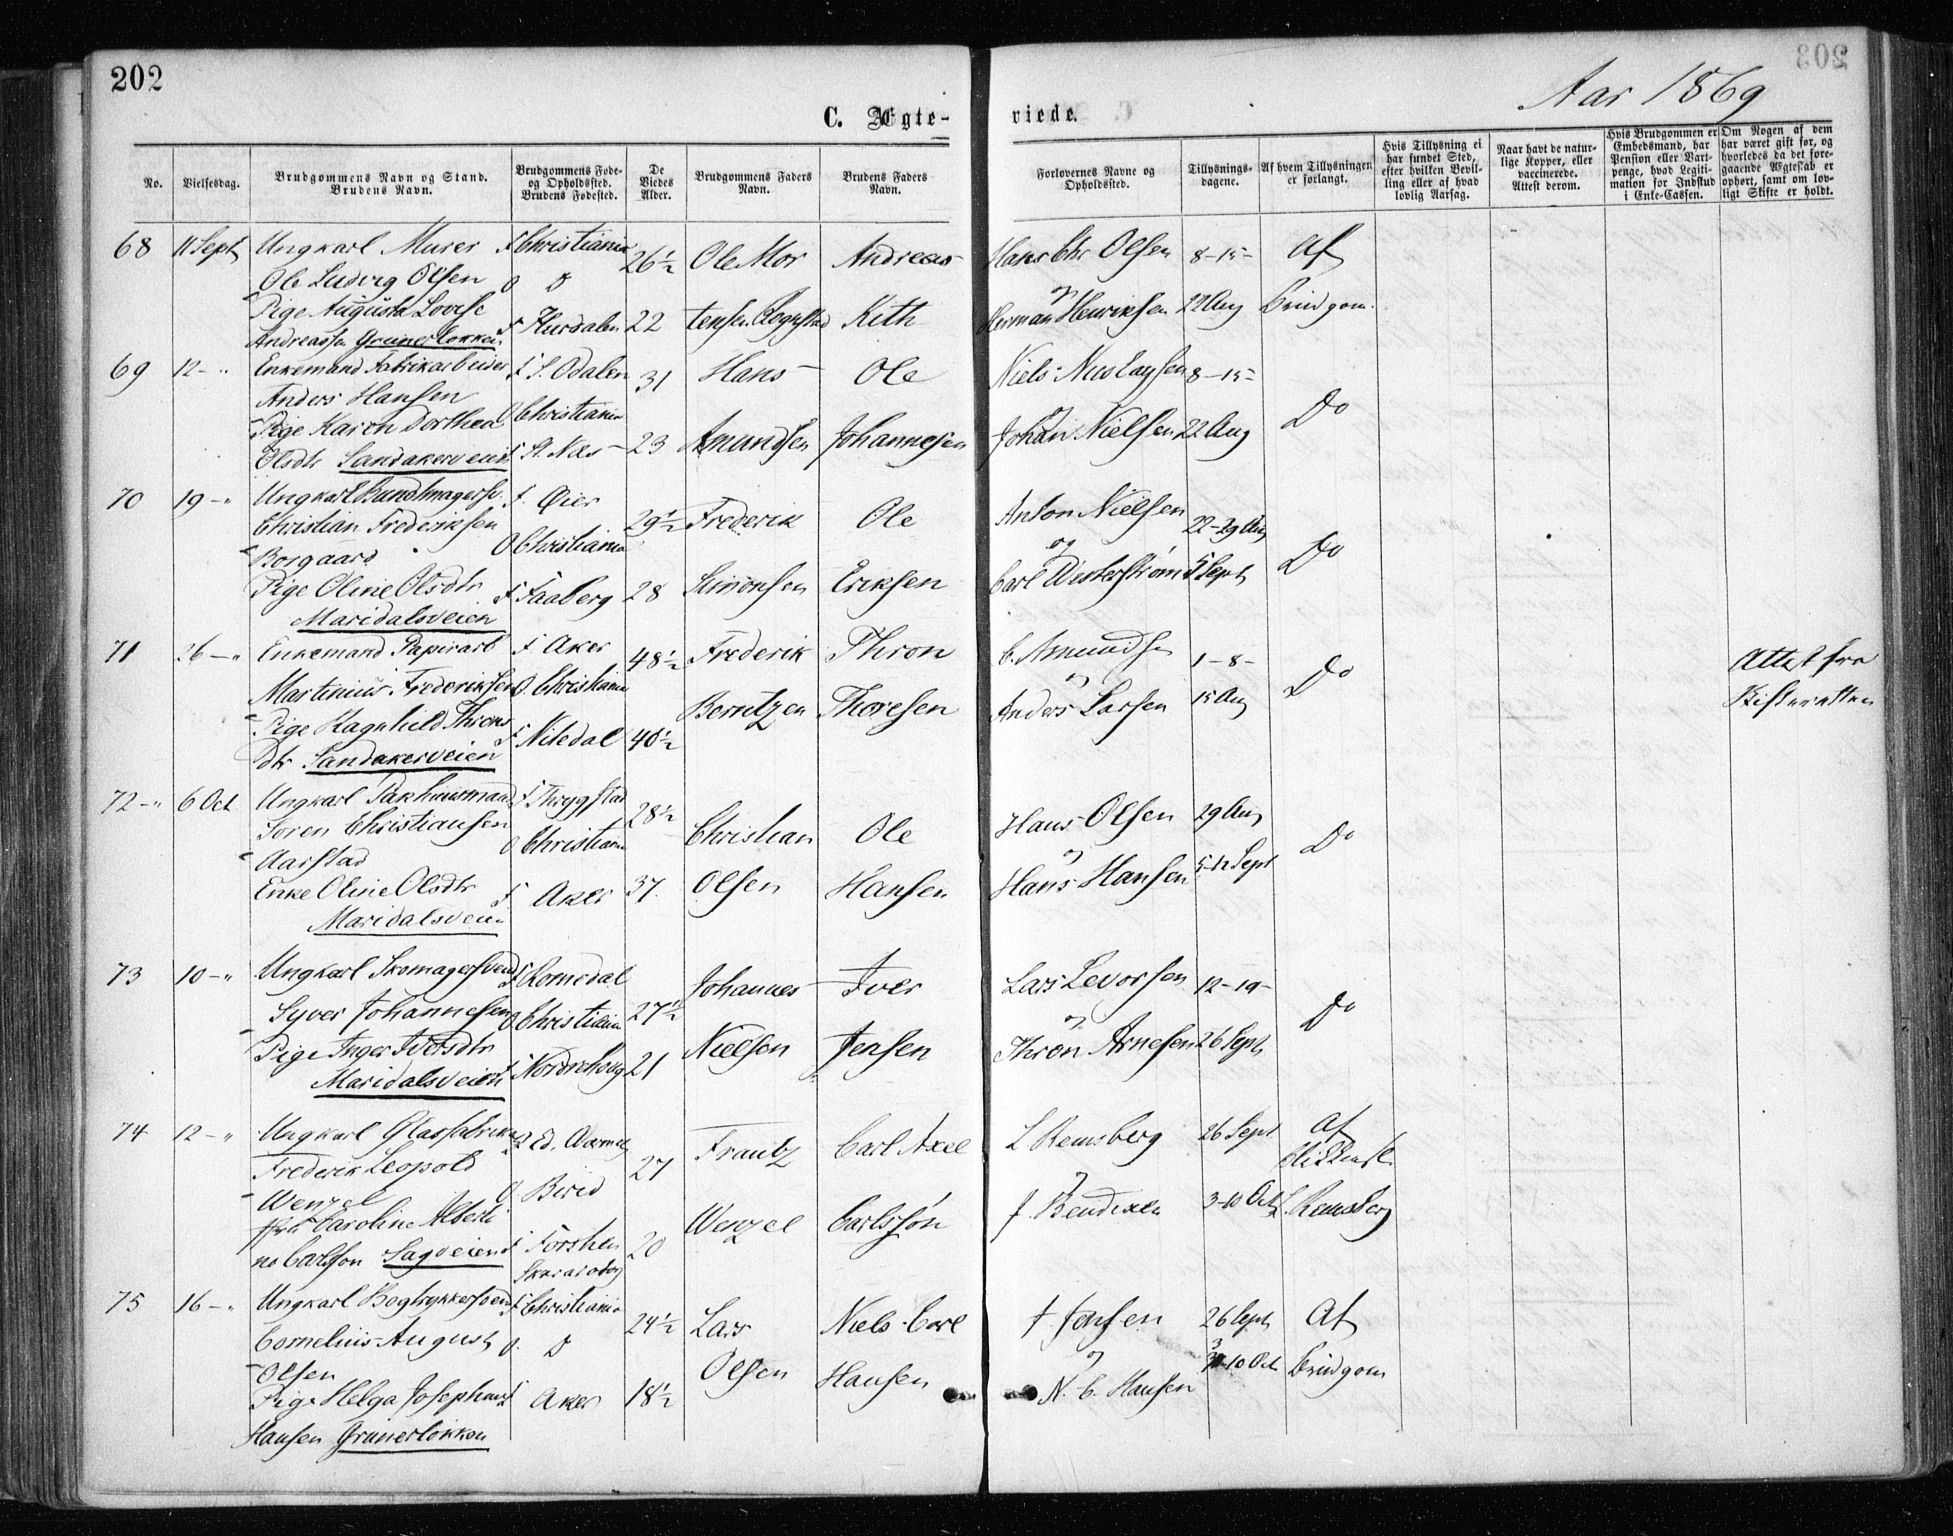 202
203
Aar 1869
C. Ægte-
viede.
No.
Vielsesdag.
Brudgommens Navn og Stand.
Brudens Navn.
Brudgommens Føde-
og Opholdssted.
Brudens Fødested.
De
Viedes
Alder.
Brudgommens Faders
Navn.
Brudens Faders
Navn.
Forlovernes Navne og
Opholdssted.
Tillysnings-
dagene.
Af hvem Tillysningen
er forlangt.
Hvis Tillysning ei
har fundet Sted,
efter hvilken Bevil-
ling eller af hvad
lovlig Aarsag.
Naar havt de natur-
lige Kopper, eller
vaccinerede.
Attest derom.
Hvis Brudgommen er
Embedsmand, har
Pension eller Vart-
penge, hvad Legiti-
mation for Indskud
i Enke-Cassen.
Om Nogen af dem
har været gift før, og
hvorledes da det fore-
gaaende Ægteskab er
ophørt, samt om lov-
ligt Skifte er holdt.
68 11 Sept Ungkarl Murer F Christiania 26½ Ole Mor Andreas Hans Chr Olsen 8-15- Af
Ole Ludvig Olsen O D og
Pige Augusta Lovise Herman Henriksen 22 Aug Brudgom.
Andreassen Grunerløkken F Hurdalen 22 tensen Kith
69 12-" Enkemand Fabrikarbeider F S. Odalen 31 Hans Ole Niels 8-15-
Anders Hansen O Christiania og Do
Pige Karen Dorthea Johan Nielsen 22 Aug
Olsdtr Sandakerveien F N. Næs 23 Amundsen Johannesen
70 19-" Ungkarl Buntmagersv. F. Øier Anton Nielsen
Christian Frederiksen 29½ Frederik Ole 22-29 Aug
Borgaard O Christiania og Do
Pige Oline Olsdtr F Faaberg 28 Simonsen Eriksen Carl Westerstrøm 5 Sept
Maridalsveien
71 26-" Enkemand Papirarb F Aker 48½ Frederik Thron C. Amundsen 1-8- Do Attest fra
Martinius Frederiksen O. Christiania og Skifteretten
Pige Ragnhild Throns Berntzen Thoresen Anders Larsen 15 Aug
dtr Sandakerveien F Nitedal 40½
72-" 6 Oct Ungkarl Pakhuusmand F Thrygstad 28½
Søren Christiansen O Christiania Christian Ole Hans Olsen 29 Aug
Aarstad og Do
Enke Oline Olsdtr F Aker 37. Olsen Hansen Hans Hansen 5-12 Sept
Maridalsveien
73 10-" Ungkarl Skomagersvend F Romedal Johannes Iver Lars Levorsen 12-19-
Syver Johannesen O Christiania 27½ og Do
Pige Inger Iversdtr F Norderhoug 21 Nielsen Jensen Thron Arnesen 26 Sept
Maridalsveien
74 12-" Ungkarl Glasfabrika F Ed. 27 Frantz Carl Axel L Remsberg 26 Sept Af
Frederik Leopold O. Birid og
Wenzel Wenzel Carlsson J. Bendixen 3-10 Oct L. Remsberg
Caroline Alberti F
ne Carlsson Sagveien 20
75 16-" Ungkarl Bogtrykkersvend F Christiania 24½ Lars Niels Carl J Jensen 26 Sept Af
Cornelius August O. D og
Olsen Olsen Hansen N. C. Hansen 3-10 Oct Brudgom
Pige Helga Josephine F Aker 18½
Hansen Grunerløkken